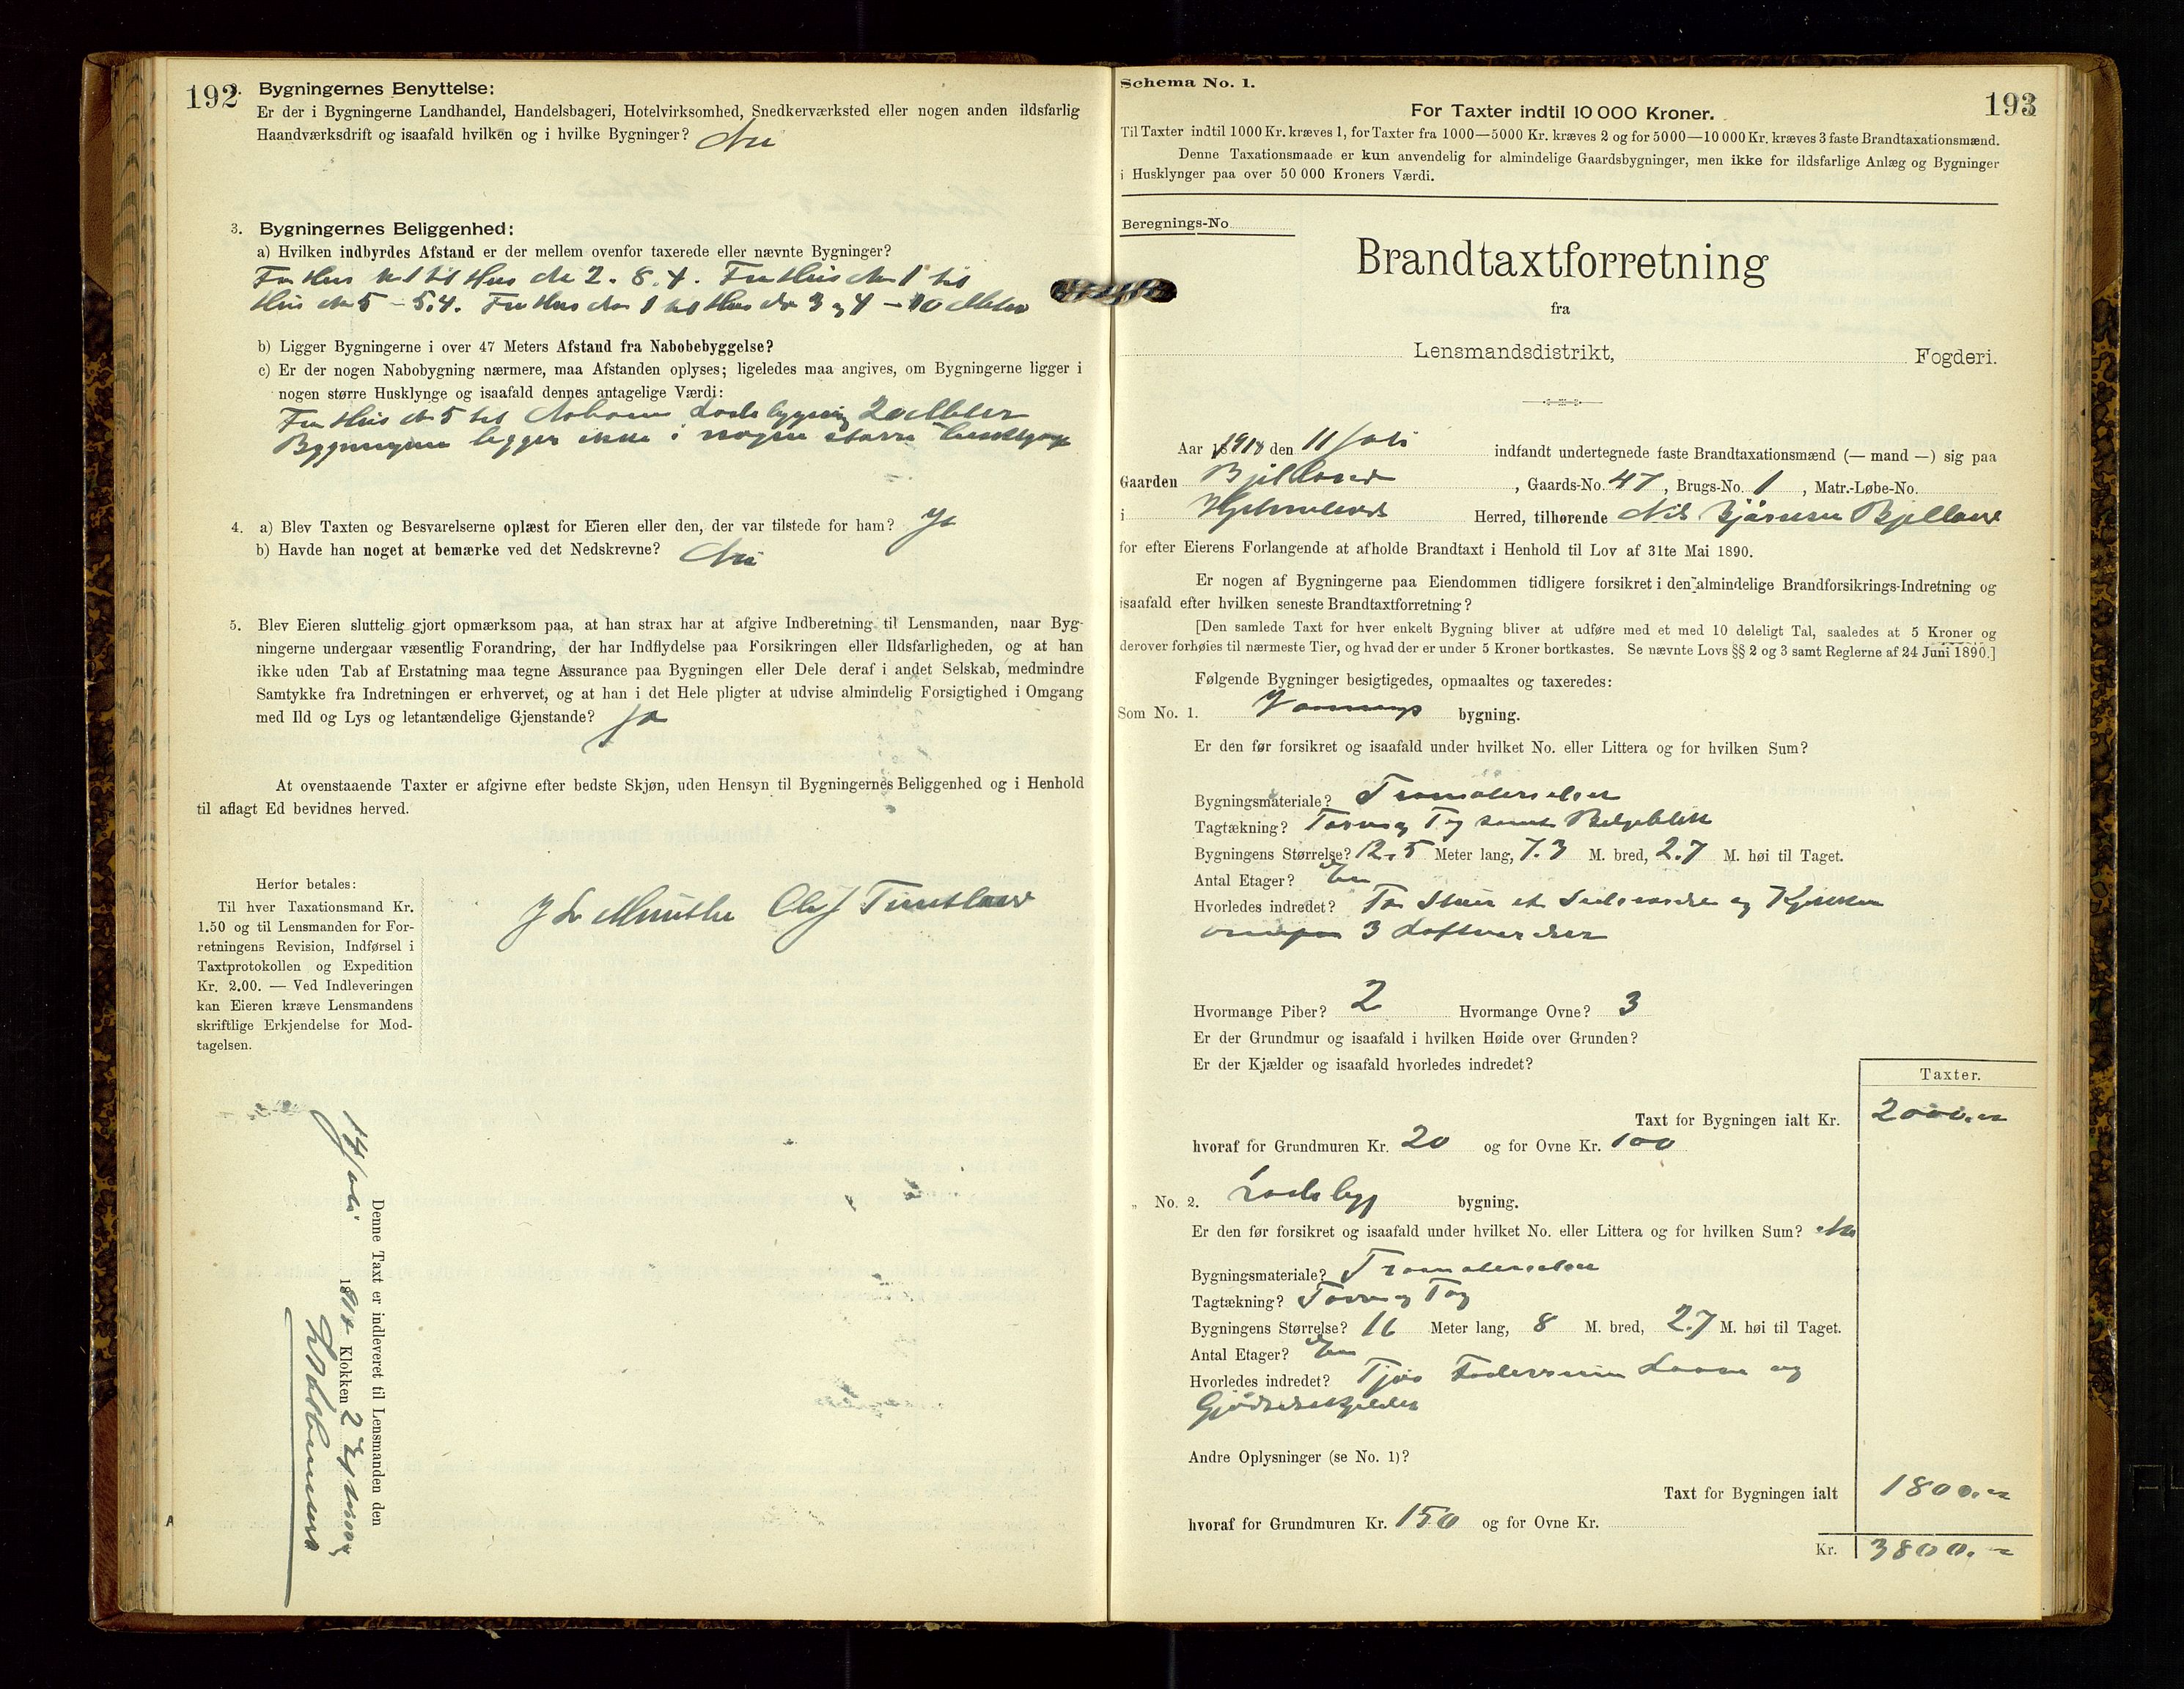 192
2. Bygningernes Benyttelse:
Er der i Bygningerne Landhandel, Handelsbageri, Hotelvirksomhed, Snedkerværksted eller nogen anden ildsfarlig
Haandværksdrift og isaafald hvilken og i hvilke Bygninger? Nei
3. Bygningernes Beliggenhed:
a) Hvilken indbyrdes Afstand er der mellem ovenfor taxerede eller nævnte Bygninger?
Fra Hus No 1 til Hus No 2. 8.4. Fra Hus No 1 til
Hus No 5 – 5,4. Fra Hus No 1 til Hus No 3 og 4 – 10 Meter
b) Ligger Bygningerne i over 47 Meters Afstand fra Nabobebyggelse?
c) Er der nogen Nabobygning nærmere, maa Afstanden oplyses; ligeledes maa angives, om Bygningerne ligger i
nogen større Husklynge og isaafald dennes antagelige Værdi:
Fra Hus No 5 til Naboens Ladebygning 20 Meter
Bygningerne ligger ikke i nogen større husklynge
4. a) Blev Taxten og Besvarelserne oplæst for Eieren eller den, der var tilstede for ham? Ja
b) Havde han noget at bemærke ved det Nedskrevne? Nei
5. Blev Eieren sluttelig gjort opmærksom paa, at han strax har at afgive Indberetning til Lensmanden, naar Byg-
ningerne undergaar væsentlig Forandring, der har Indflydelse paa Forsikringen eller Ildsfarligheden, og at han
ikke uden Tab af Erstatning maa tegne Assurance paa Bygningen eller Dele deraf i andet Selskab, medmindre
Samtykke fra Indretningen er erhvervet, og at han i det Hele pligter at udvise almindelig Forsigtighed i Omgang
med Ild og Lys og letantændelige Gjenstande? Ja
At ovenstaaende Taxter er afgivne efter bedste Skjøn, uden Hensyn til Bygningernes Beliggenhed og i Henhold
til aflagt Ed bevidnes herved.
Herfor betales:
Til hver Taxationsmand Kr.
1.50 og til Lensmanden for For-
retningens Revision, Indførsel i
Taxtprotokollen og Expedition
Kr. 2.00. — Ved Indleveringen
kan Eieren kræve Lensmandens
skriftlige Erkjendelse for Mod-
tagelsen.
Olaf
Denne Taxt er indleveret til Lensmanden den
14 Juli 1914 Klokken 2 Eftermidag
Schema No. 1.
193
For Taxter indtil 10 000 Kroner.
Til Taxter indtil 1000 Kr. kræves 1, for Taxter fra 1000—5000 Kr. kræves 2 og for 5000—10 000 Kr. kræves 3 faste Brandtaxationsmænd.
Denne Taxationsmaade er kun anvendelig for almindelige Gaardsbygninger, men ikke for ildsfarlige Anlæg og Bygninger
i Husklynger paa over 50 000 Kroners Værdi.
Beregnings-No.
Brandtaxtforretning
fra
Lensmandsdistrikt, Fogderi.
Aar 1914 den 11 Juli indfandt undertegnede faste Brandtaxationsmænd (— mand —) sig paa
Gaarden Bjelland, Gaards-No. 47, Brugs-No. 1, Matr.-Løbe-No.
i Hjelmeland Herred, tilhørende Nils Bjørnsen Bjelland
for efter Eierens Forlangende at afholde Brandtaxt i Henhold til Lov af 31te Mai 1890.
Er nogen af Bygningerne paa Eiendommen tidligere forsikret i den almindelige Brandforsikrings-Indretning og
isaafald efter hvilken seneste Brandtaxtforretning?
[Den samlede Taxt for hver enkelt Bygning bliver at udføre med et med 10 deleligt Tal, saaledes at 5 Kroner og
derover forhøies til nærmeste Tier, og hvad der er under 5 Kroner bortkastes. Se nævnte Lovs §§ 2 og 3 samt Reglerne af 24 Juni 1890.]
Følgende Bygninger besigtigedes, opmaaltes og taxeredes:
Som No. 1. Vaanings bygning.
Er den før forsikret og isaafald under hvilket No. eller Littera og for hvilken Sum?
Bygningsmateriale? Træmaterialer
Tagtækning? Torv og Tag samt Bølgeblik
Bygningens Størrelse? 12.5 Meter lang, 7.3 M. bred, 2.7 M. høi til Taget.
Antal Etager? En
Hvorledes indredet? To Stuer et Sideværelse og Kjøkken
3 Loftværelser
Hvormange Piber? 2 Hvormange Ovne? 3
Er der Grundmur og isaafald i hvilken Høide over Grunden?
Er der Kjælder og isaafald hvorledes indredet?
Taxter.
Taxt for Bygningen ialt Kr. 2000.-
hvoraf for Grundmuren Kr. 20 og for Ovne Kr. 100
„ No. 2. Ladebyg bygning.
Er den før forsikret og isaafald under hvilket No. eller Littera og for hvilken Sum? Nei
Bygningsmateriale? Træmaterialer
Tagtækning? Torv og Tag
Bygningens Størrelse? 16 Meter lang, 8 M. bred, 2.7 M. høi til Taget.
Antal Etager? En
Hvorledes indredet? Fjøs Foderrum Laave og
Gjødselskjelder
Andre Oplysninger (se No. 1)?
Taxt for Bygningen ialt 1800.-
hvoraf for Grundmuren Kr. 150 og for Ovne Kr.
Kr. 3800.-